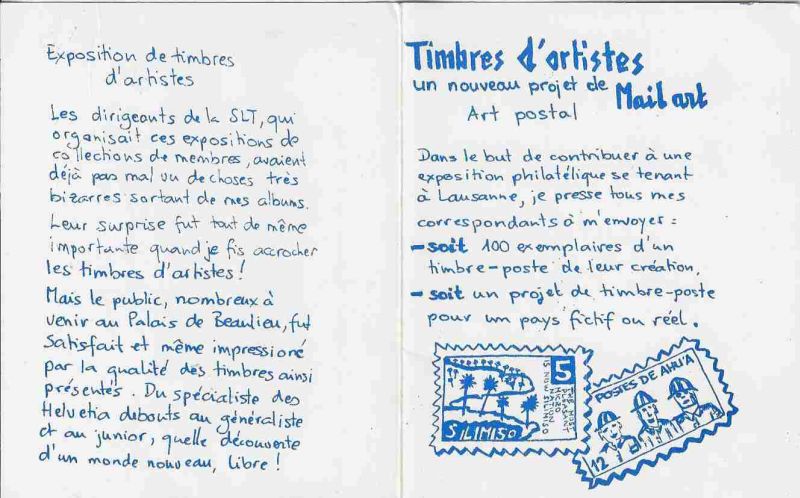 Exposition de timbres
d'artistes
Les dirigeants de la SLT, qui
organisait ces expositions de
collections de membres, avaient
déjà pas mal vu de choses très
bizarres sortant de mes albums.
Leur surprise fut tout de même
importante quand je fis accrocher
les timbres d'artistes !
Mais le public, nombreux à
venir au Palais de Beaulieu, fut
satisfait et même impressioné
par la qualité des timbres ainsi
présentés. Du spécialiste des
Helvetia debouts au généraliste
et au junior, quelle découverte
d'un monde nouveau, libre !
Timbres d'artistes
un nouveau projet de
Mail art
Art postal
Dans le but de contribuer à une
exposition philatélique se tenant
à Lausanne, je presse tous mes
correspondants à m'envoyer :
- soit 100 exemplaires d'un
timbre-poste de leur création,
- soit un projet de timbre-poste
pour un pays fictif ou réel.
5
THE MOST
PLEASANT
MICRO
NATION
IS NOW SILIMISO
SILIMISO
POSTES DE AHU'A
12